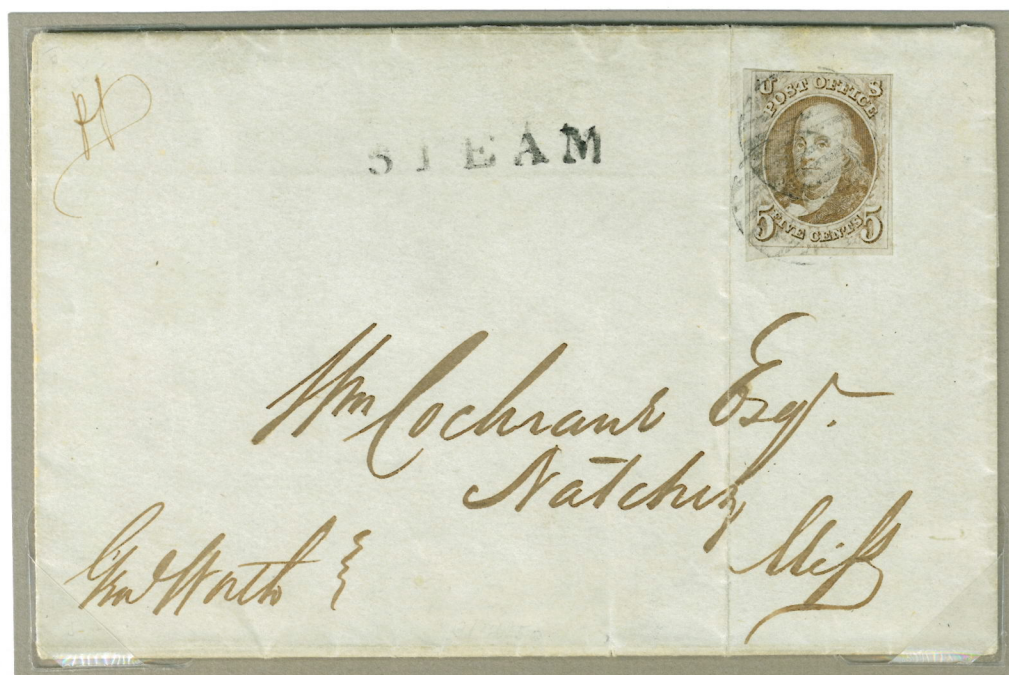 STEAM
U S
POST OFFICE
FIVE CENTS
5 5
Wm Cochrane Esqr.
Natchez
Miss
Worth